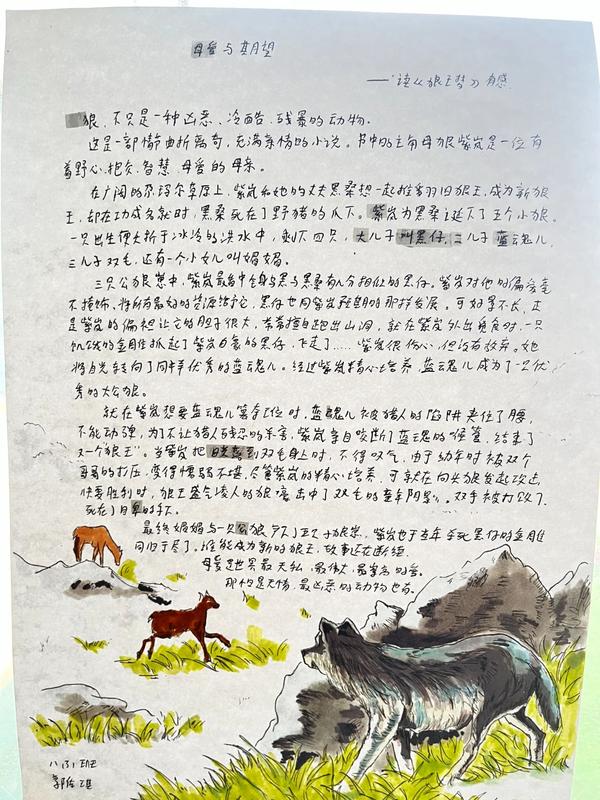 母爱与期望
——读《狼王梦》有感
狼,不只是一种凶恶、冷酷、残暴的动物。
这是一部情节曲折离奇,充满亲情的小说。书中的主角母狼紫岚是一位有
着野心、抱负、智慧、母爱的母亲。
在广阔的尕玛尔草原上,紫岚和她的丈夫黑桑想一起推翻旧狼王,成为新狼
王,却在功成名就时,黑桑死在了野猪的爪下。紫岚为黑桑诞下了五个小狼。
一只出生便夭折于冰冷的洪水中,剩下四只,大儿子叫黑仔,二儿子蓝魂儿,
三儿子双毛,还有一个小女儿叫媚媚。
三只公狼崽中,紫岚最看中全身乌黑与黑桑有八分相似的黑仔。紫岚对他的偏爱毫
不掩饰,将所有最好的资源给它,黑仔也同紫岚预期的那样发展。可好景不长,正
是紫岚的偏袒让它的胆子很大,常常擅自跑出山洞,就在紫岚外出觅食时,一只
饥饿的金雕抓起了紫岚的黑仔,飞走了……紫岚很伤心,但没有放弃。她
将目光转向了同样优秀的蓝魂儿。经过紫岚精心培养,蓝魂儿成为了一只优
秀的大公狼。
就在紫岚想要蓝魂儿篡夺王位时,蓝魂儿被猎人的陷阱夹住了腰,
不能动弹,为了不让猎人残忍的杀害,紫岚亲自咬断了蓝魂儿的喉管,结束了
又一个"狼王"。当紫岚把目光看到双毛身上时,不得叹气,由于幼年时被双个
哥哥的打压,变得懦弱不堪,尽管紫岚的精心培养,可就在向头狼发起攻击,
快要胜利时,狼王盛气凌人的狼嚎击中了双毛的童年阴影。双毛被打败了,
死在了自卑的手下。
最终媚媚与一只公狼产下了五个狼崽,紫岚也于当年杀死黑仔的金雕
同归于尽了。谁能成为新的狼王,故事还在断续
母爱是世界最无私,最伟大,最崇高的爱。
那怕是无情,最凶恶的动物也有。
八(3)班